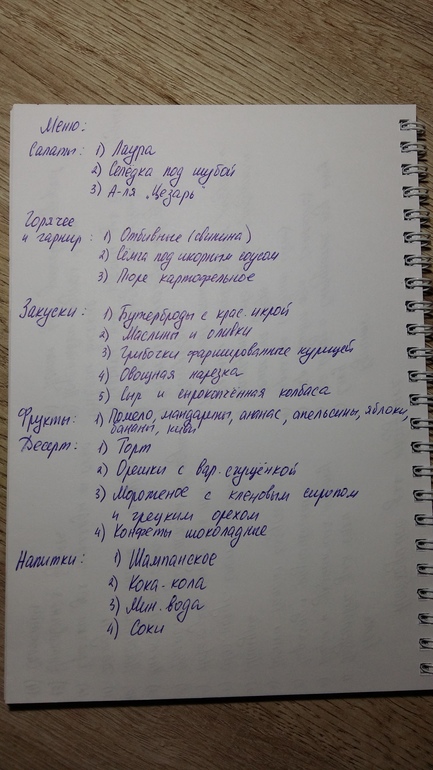 Меню:
Салаты: 1) Лаура
2) Селёдка под шубой
3) А-ля „Цезарь"
Горячее
и гарнир: 1) Отбивные (свинина)
2) Сёмга под икорным соусом
3) Пюре картофельное
Закуски: 1) Бутерброды с крас. икрой
2) Маслины и оливки
3) Грибочки фаршированные курицей
4) Овощная нарезка
5) Сыр и сырокопчённая колбаса
Фрукты: 1) Помело, мандарины, ананас, апельсины, яблоки,
бананы, киви
Десерт: 1) Торт
2) Орешки с вар. сгущёнкой
3) Мороженое с кленовым сиропом
и грецким орехом
4) Конфеты шоколадные
Напитки: 1) Шампанское
2) Кока-кола
3) Мин. вода
4) Соки